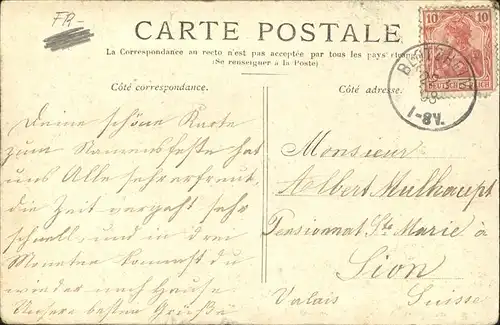 FR-
CARTE POSTALE
La Correspondance au recto n'est pas acceptée par tous les pays étrangers
(Se renseigner à la Poste)
Côté correspondance.
Côté adresse.
10 10
DEUTSCHES REICH
1-8V.
Deine schöne Karte
zum Namensfeste hat
uns Alle sehr erfreut,
die Zeit vergeht sehr
schnell, und in drei
Monaten kommst du
wieder nach Hause
Unsere besten Grüße
Monsieur
Albert Mulhaupt
Pensionnat Ste Marie à
Sion
Valais Suisse